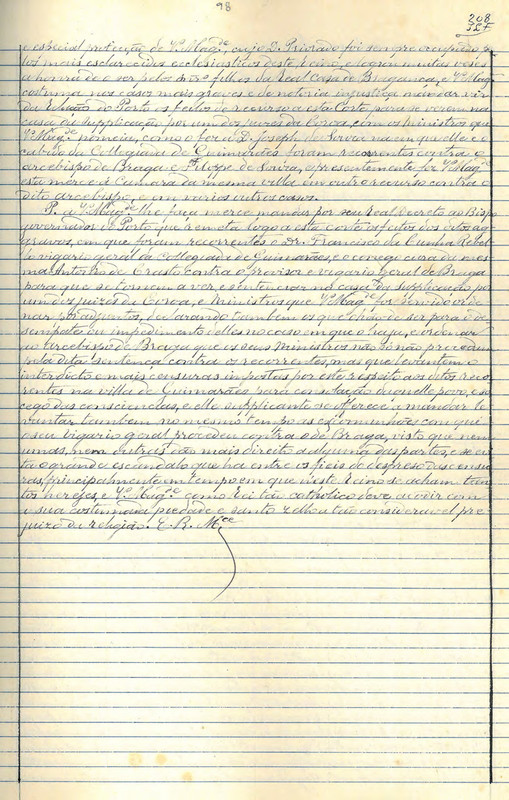 98
208
e especial protecção de V.ª Mag.de cujo D. Priorado foi sempre occupado p
los mais esclarecidos ecclesiasticos deste Reino, e logrou muitas veses
a honra de o ser pelos Snr.es filhos da Real Casa de Bragança, e V.ª Mag.de
costuma nos casos mais graves e de notoria injustiça mandar vir
da Relação do Porto os feitos de recurso a esta Corte para se verem na
casa da Supplicação por um dos juizes da Coroa, com os Ministros que
V.ª Mag.de nomeia, como o foi a D. Joseph de
cabido da Collegiada de Guimarães foram recorrentes contra o
arcebispo de Braga F. Filippe de Sousa, e presentemente fez V.ª Mag.de
esta mercê á Camara da mesma villa em outro recurso contra o
dito arcebispo e em varios outros casos.
P. a V.ª Mag.de lhe faça mercê mandar por seu Real Decreto ao Bispo
governador do Porto que remeta logo a esta corte os feitos dos ditos ag
gravos, em que foram recorrentes o Dr. Francisco da Cunha Rebel
lo vigario geral da Collegiada de Guimarães, e o conego cura da mes
ma Antonio de Crasto contra o provisor e vigario geral de Braga
para que se tornem a ver, e sentenciar na casa da Supplicação por
um dos juizes da Coroa, e Ministros que V.ª Mag.de for servido orde
nar por adjuntos, declarando tambem os que hão de ser para de
sempate ou impedimento delles no caso em que o haja, e ordenar
ao arcebispo de Braga que os seus Ministros não só não procedam
pela dita sentença contra os recorrentes, mas que levantem o
interdicto e mais censuras impostas por este respeito aos ditos recor
rentes na villa de Guimarães para consolação daquelle povo, e so
cego das consciencias, e elle supplicante se offerece a mandar le
vantar tambem no mesmo tempo as excommunhões com que
o seu vigario geral procedeu contra o de Braga, visto que nem
umas, nem outras dão mais direito a alguma das partes, e se evi
ta o grande escandalo que ha entre os fieis do despreso das censu
ras, principalmente em tempo em que neste Reino se acham tan
tos herejes, e V.ª Mag.de como Rei tão catholico deve acodir com
a sua costumada piedade e santo zello a tão consideravel pre
juizo da religião. E. R. M.ce